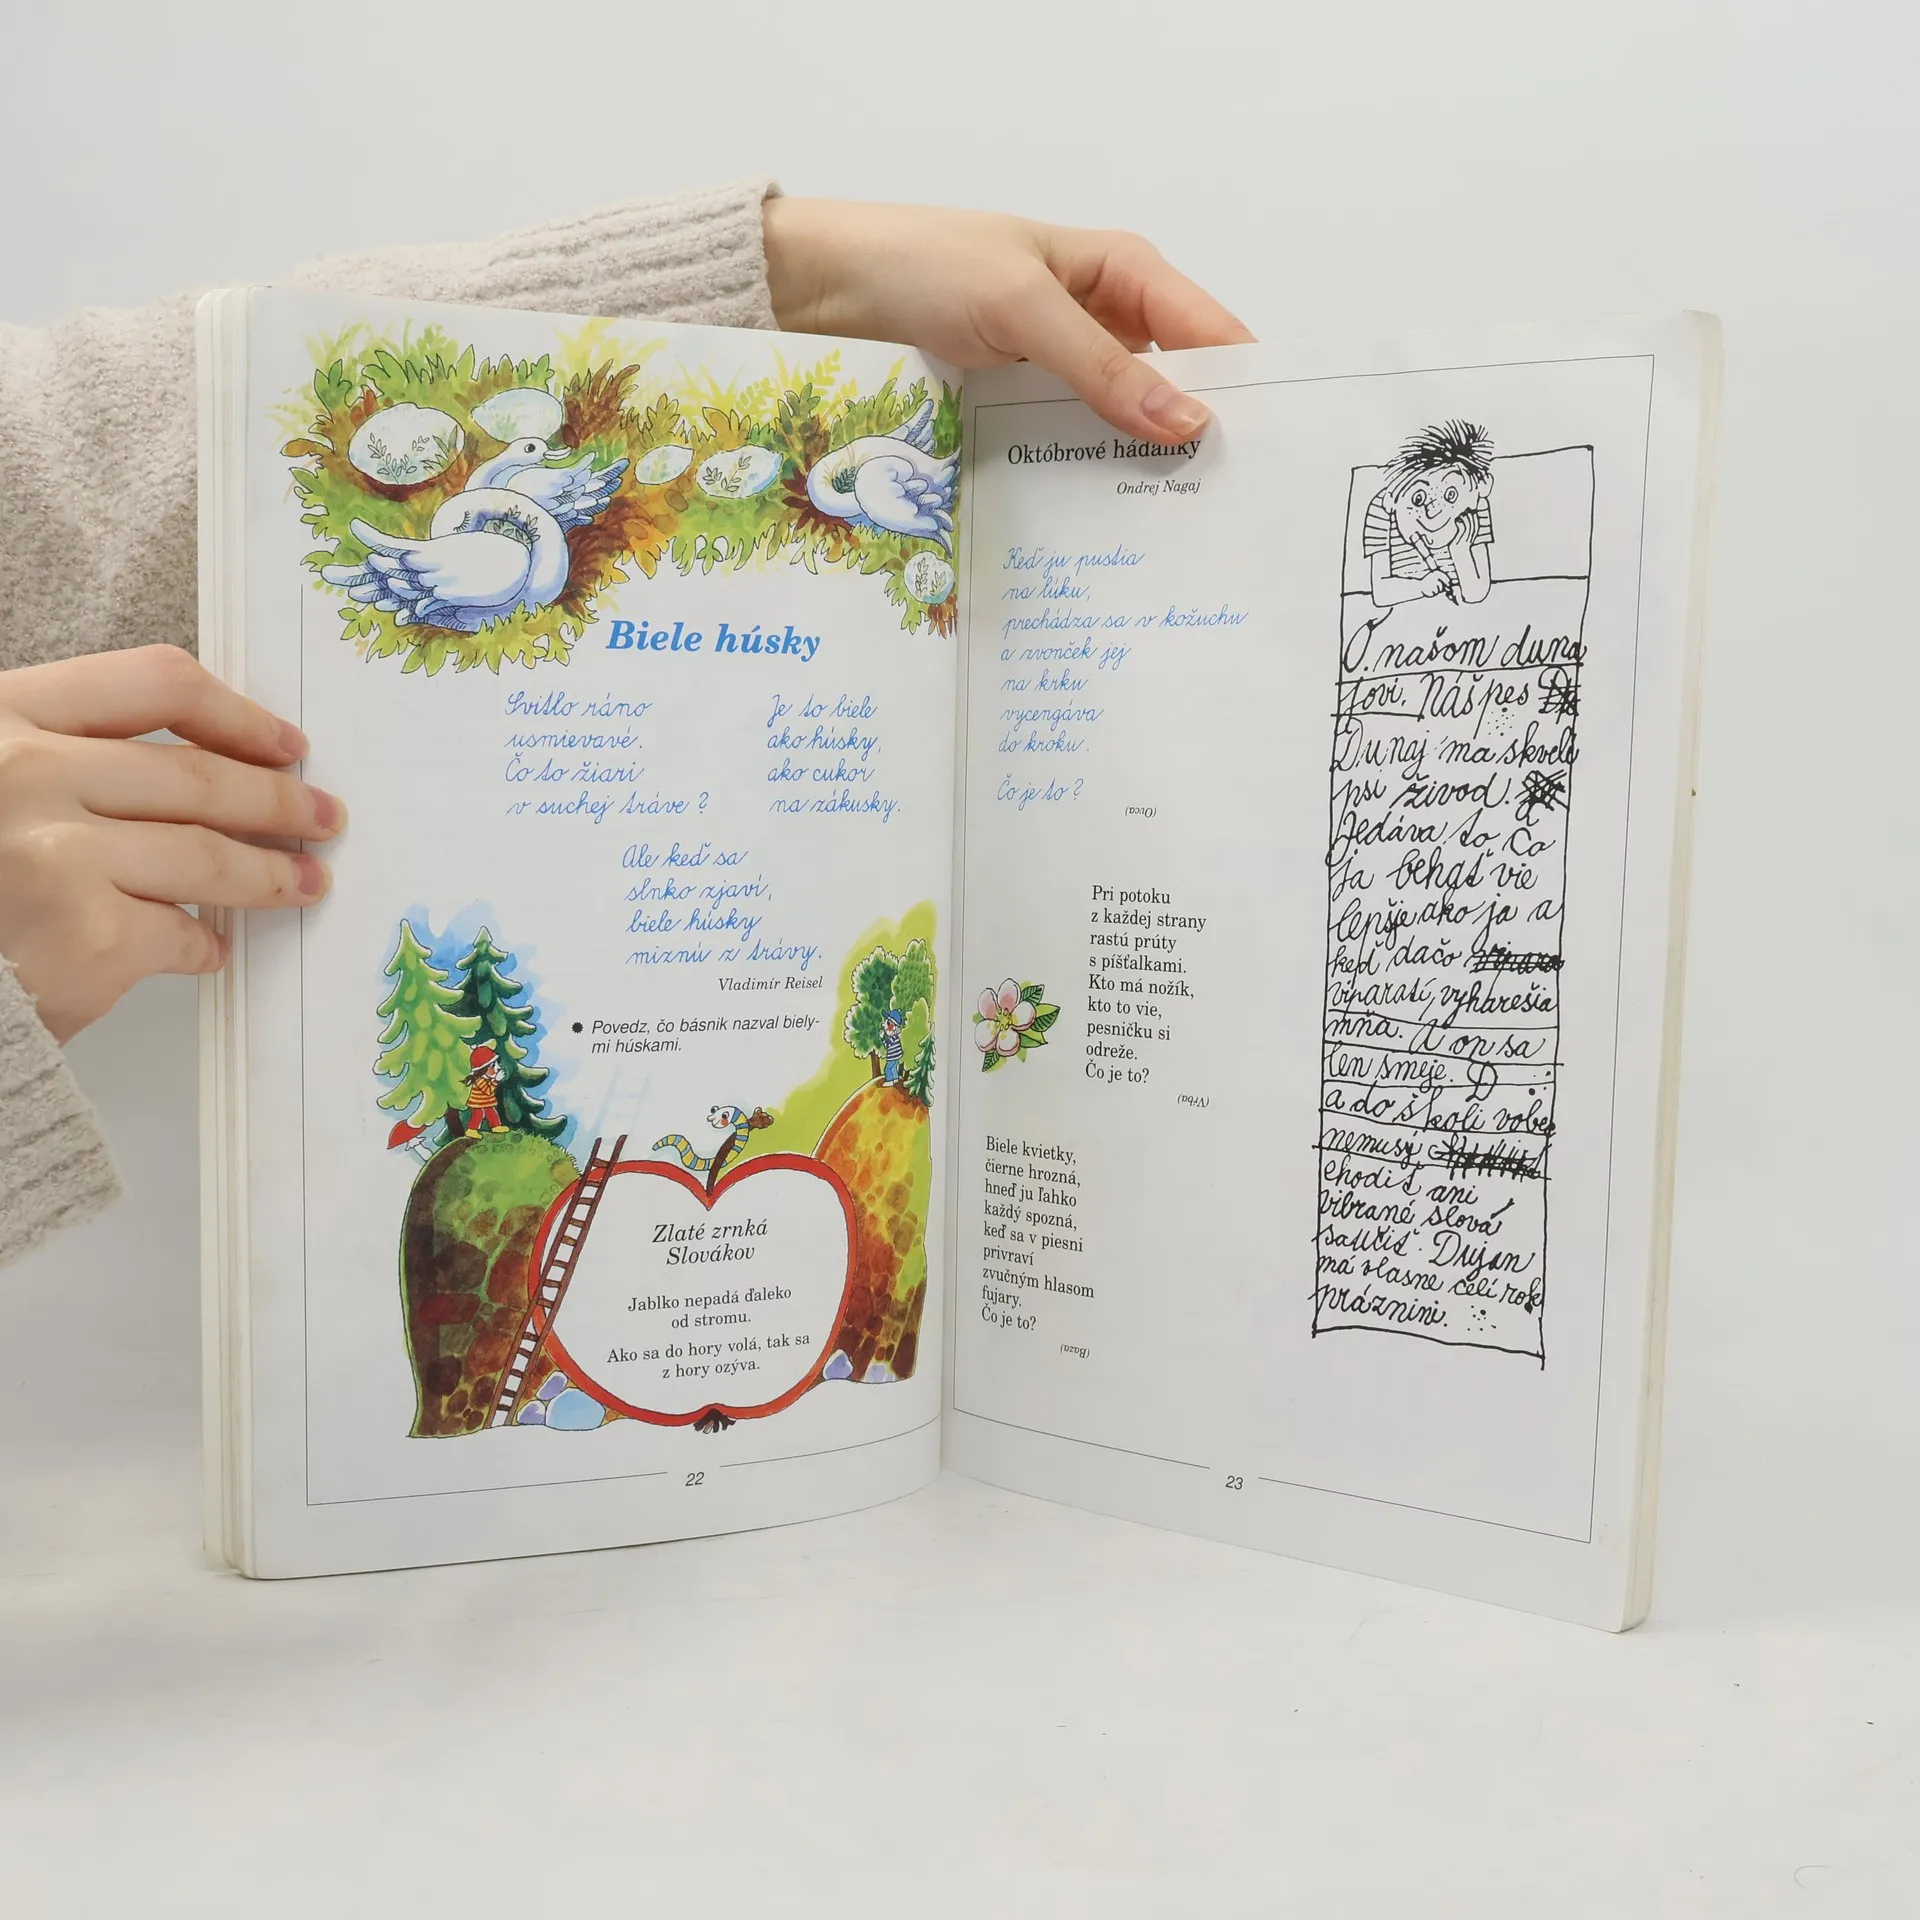 Biele húsky
Svitlo ráno
usmievavé.
Čo to žiari
v suchej tráve ?
Je to biele
ako húsky,
ako cukor
na zákusky.
Ale keď sa
slnko zjaví,
biele húsky
miznú z trávy.
Vladimír Reisel
Povedz, čo básnik nazval biely-
mi húskami.
Zlaté zrnká
Slovákov
Jablko nepadá ďaleko
od stromu.
Ako sa do hory volá, tak sa
z hory ozýva.
22
Októbrové hádanky
Ondrej Nagaj
Keď ju pustia
na lúku,
prechádza sa v kožuchu
a zvonček jej
na krku
vycengáva
do kroku.
Čo je to ?
(Ovca)
Pri potoku
z každej strany
rastú prúty
s píšťalkami.
Kto má nožík,
kto to vie,
pesničku si
odreže.
Čo je to?
(Vŕba)
Biele kvietky,
čierne hrozná,
hneď ju ľahko
každý spozná,
keď sa v piesni
privraví
zvučným hlasom
fujary.
Čo je to?
(Baza)
O našom duna
jovi. Náš pes
Dunaj ma skvelí
psí živod.
Jedáva to. Čo
ja behať vie
lepšie ako ja a
keď dačo
viparatí, vyharešia
mňa. A on sa
len smeje. D
a do školi vobec
nemusí
chodiť ani
vibrané slová
saučiť. Dujan
má vlasne celí rok
práznini.
23